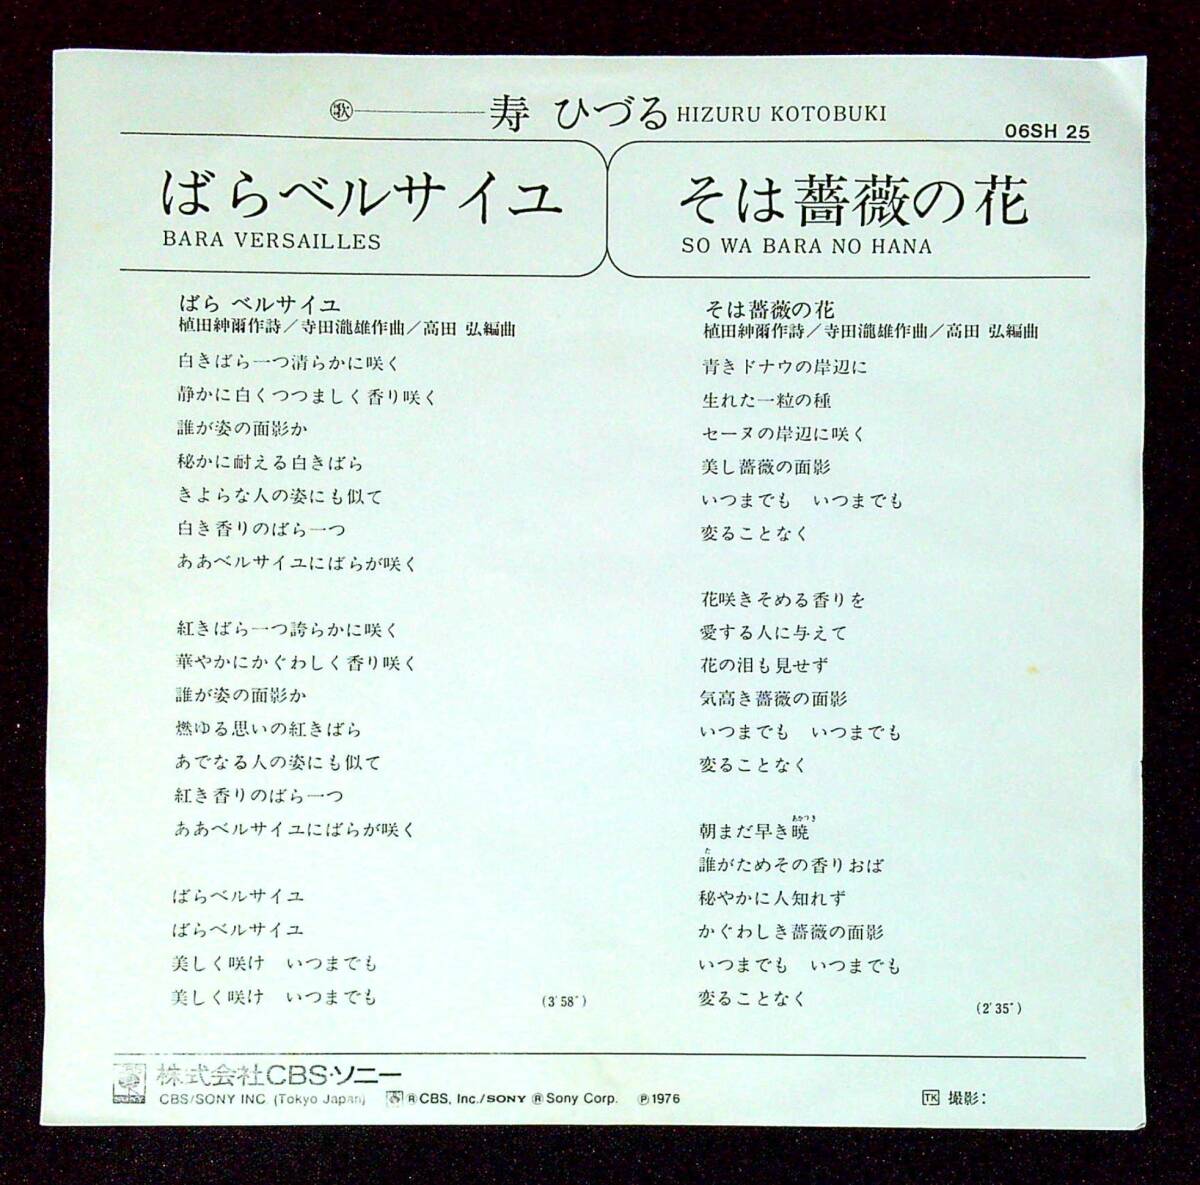 歌 寿 ひづる HIZURU KOTOBUKI
06SH 25
ばらベルサイユ
BARA VERSAILLES
そは薔薇の花
SO WA BARA NO HANA
ばら ベルサイユ
植田紳爾作詩／寺田瀧雄作曲／高田 弘編曲
白きばら一つ清らかに咲く
静かに白くつつましく香り咲く
誰が姿の面影か
秘かに耐える白きばら
きよらな人の姿にも似て
白き香りのばら一つ
ああベルサイユにばらが咲く
紅きばら一つ誇らかに咲く
華やかにかぐわしく香り咲く
誰が姿の面影か
燃ゆる思いの紅きばら
あでなる人の姿にも似て
紅き香りのばら一つ
ああベルサイユにばらが咲く
ばらベルサイユ
ばらベルサイユ
美しく咲け いつまでも
美しく咲け いつまでも
(3'58")
そは薔薇の花
植田紳爾作詩／寺田瀧雄作曲／高田 弘編曲
青きドナウの岸辺に
生れた一粒の種
セーヌの岸辺に咲く
美し薔薇の面影
いつまでも いつまでも
変ることなく
花咲きそめる香りを
愛する人に与えて
花の泪も見せず
気高き薔薇の面影
いつまでも いつまでも
変ることなく
あかつき
朝まだ早き暁
た
誰がためその香りおば
秘やかに人知れず
かぐわしき薔薇の面影
いつまでも いつまでも
変ることなく
(2'35")
株式会社CBS・ソニー
CBS/SONY INC. (Tokyo Japan) ® CBS, Inc./SONY ® Sony Corp. ℗1976
TK 撮影：